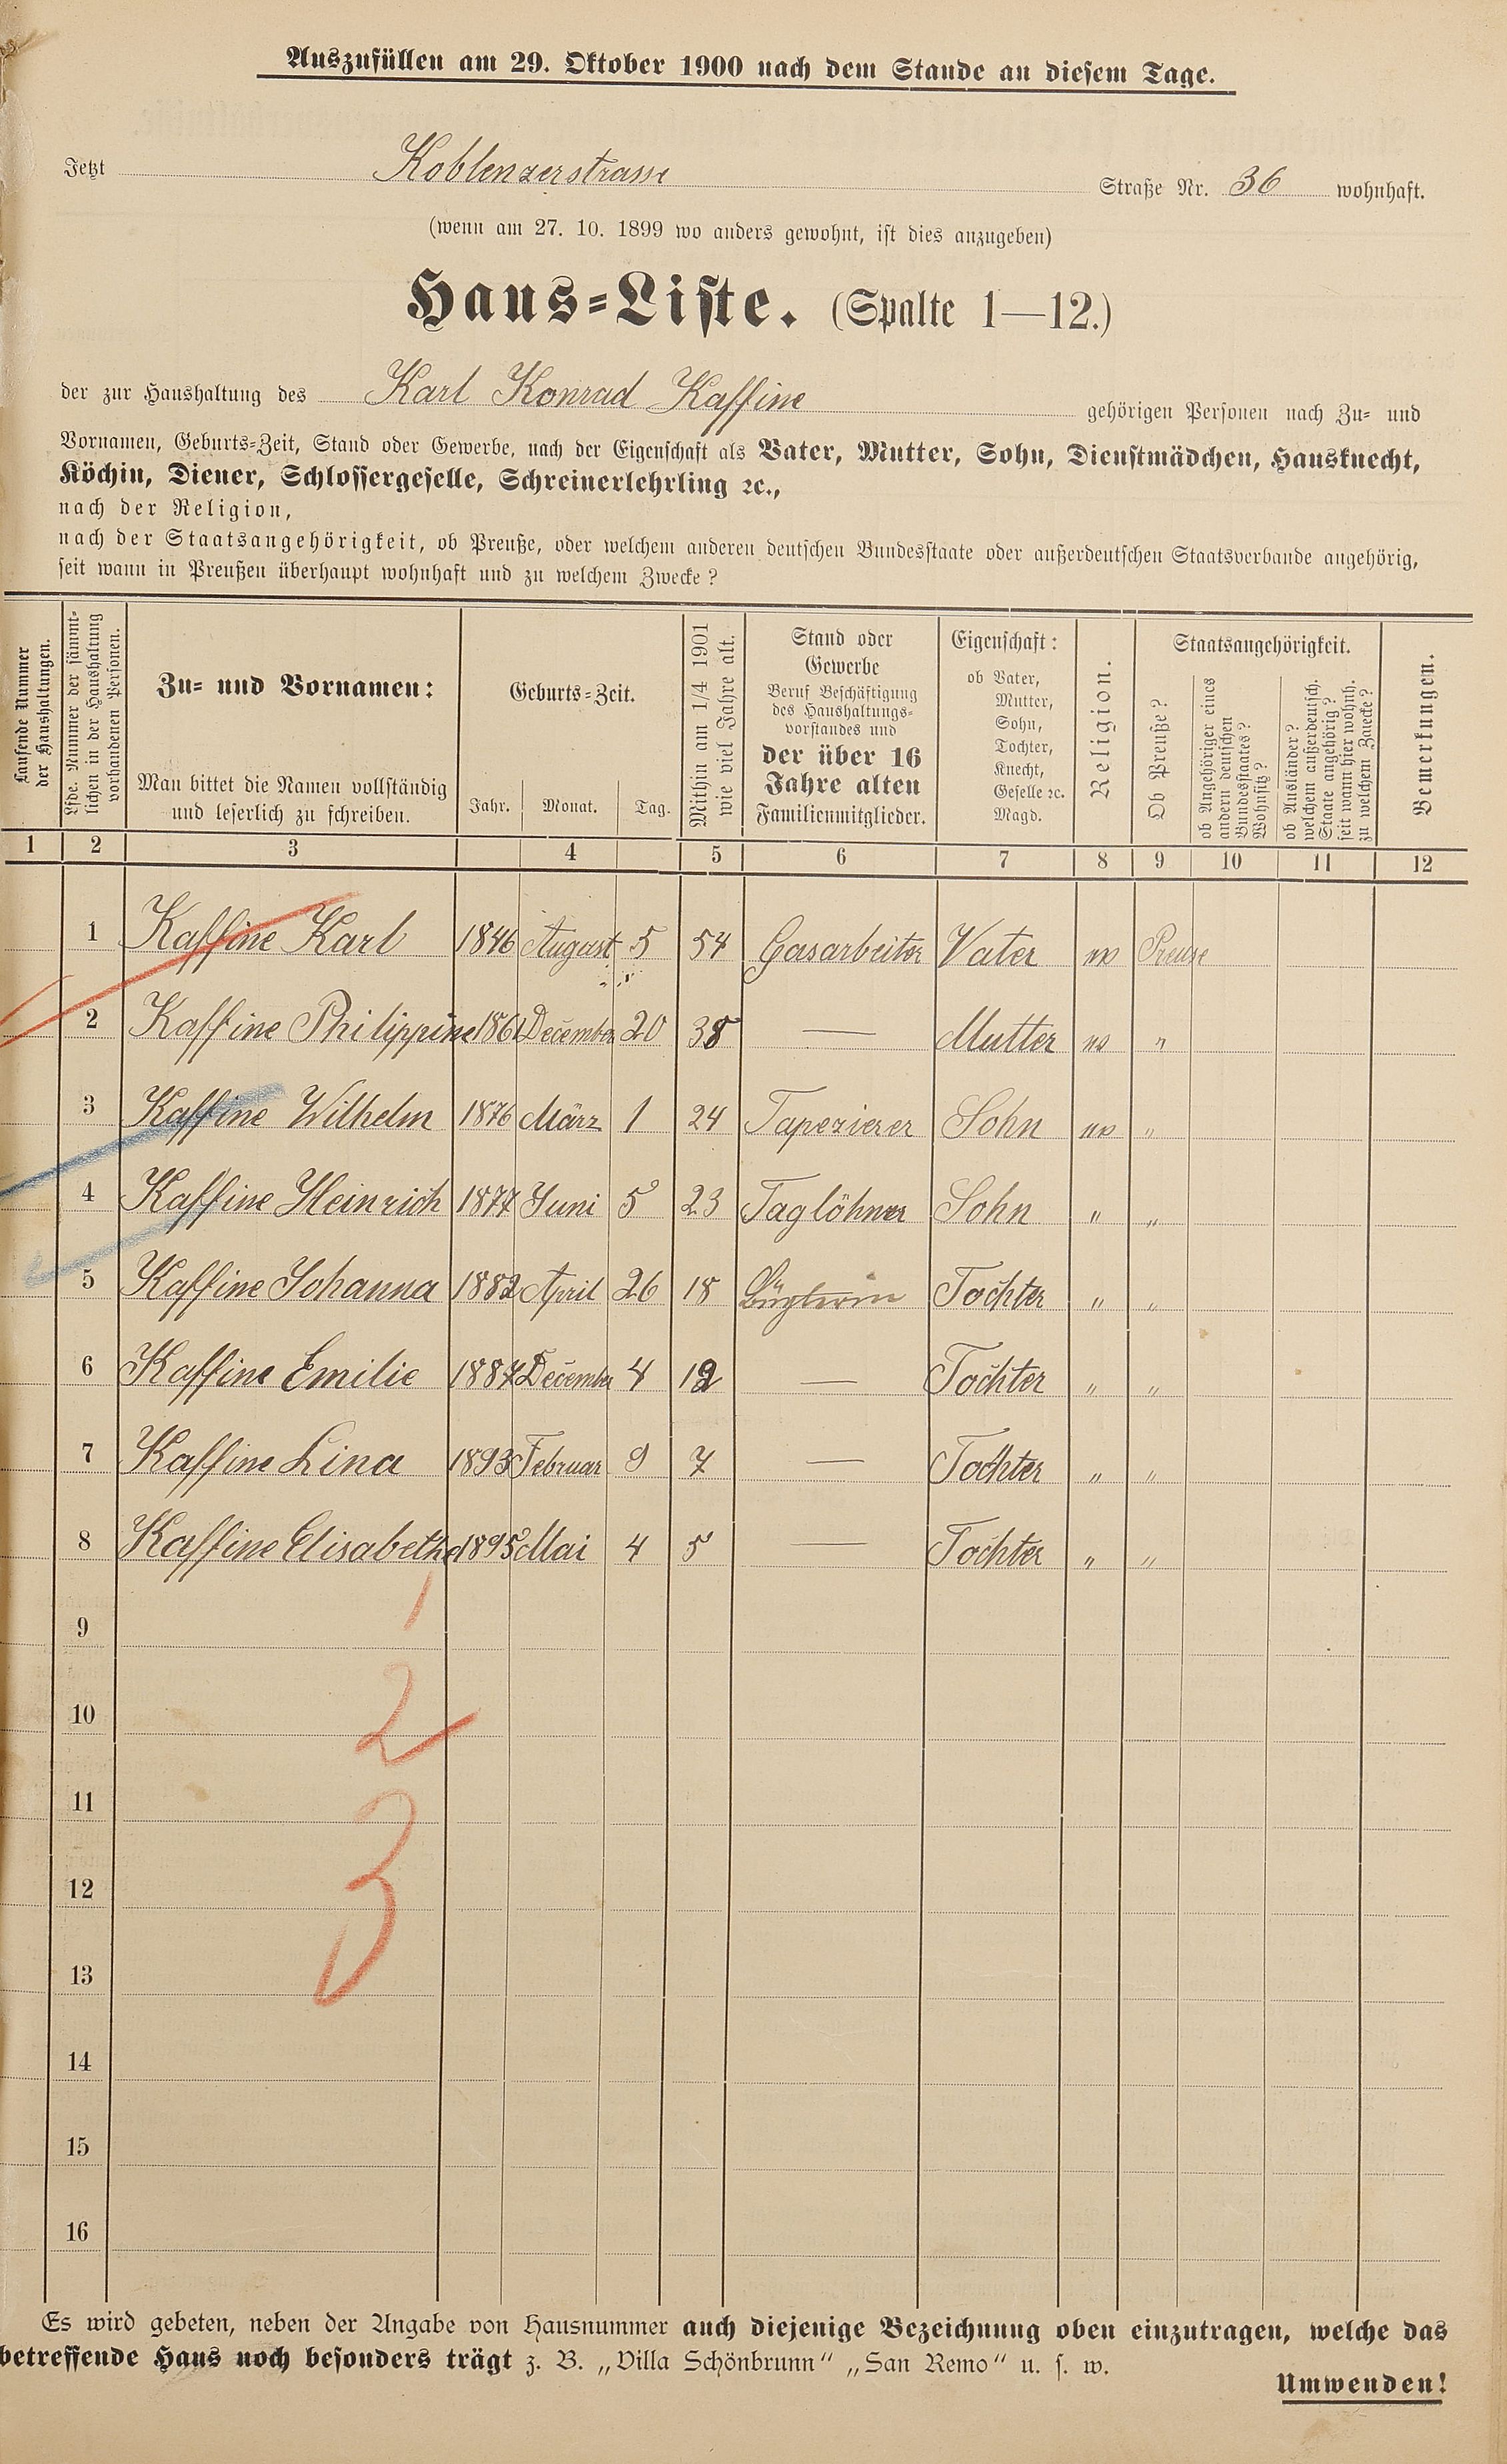 Auszufüllen am 29. Oktober 1900 nach dem Stande an diesem Tage.
Jetzt Koblenzerstrasse Straße Nr. 36 wohnhaft.
(wenn am 27. 10. 1899 wo anders gewohnt, ist dies anzugeben)
Haus-Liste. (Spalte 1—12.)
der zur Haushaltung des Karl Konrad Kaffine gehörigen Personen nach Zu- und
Vornamen, Geburts-Zeit, Stand oder Gewerbe, nach der Eigenschaft als Vater, Mutter, Sohn, Dienstmädchen, Hausknecht,
Köchin, Diener, Schlossergeselle, Schreinerlehrling ꝛc.,
nach der Religion,
nach der Staatsangehörigkeit, ob Preuße, oder welchem anderen deutschen Bundesstaate oder außerdeutschen Staatsverbande angehörig,
seit wann in Preußen überhaupt wohnhaft und zu welchem Zwecke?
Laufende Nummer
der Haushaltungen.
Lfde. Nummer der sämmt-
lichen in der Haushaltung
vorhandenen Personen.
Zu- und Vornamen:
Man bittet die Namen vollständig
und leserlich zu schreiben.
Geburts-Zeit.
Jahr. Monat. Tag.
Mithin am 1/4 1901
wie viel Jahre alt.
Stand oder
Gewerbe
Beruf Beschäftigung
des Haushaltungs-
vorstandes und
der über 16
Jahre alten
Familienmitglieder.
Eigenschaft:
ob Vater,
Mutter,
Sohn,
Tochter,
Knecht,
Geselle ꝛc.
Magd.
Religion.
Staatsangehörigkeit.
Ob Preuße?
ob Angehöriger eines
andern deutschen
Bundesstaates?
Wohnsitz?
ob Ausländer?
welchem außerdeutsch.
Staate angehörig?
seit wann hier wohnh.
zu welchem Zwecke?
Bemerkungen.
1 2 3 4 5 6 7 8 9 10 11 12
1 Kaffine Karl 1846 August 5 54 Gasarbeiter Vater Preuse
2 Kaffine Philippine 1861 December 20 38 — Mutter "
3 Kaffine Wilhelm 1876 März 1 24 Tapezierer Sohn "
4 Kaffine Heinrich 1877 Juni 5 23 Taglöhner Sohn " "
5 Kaffine Johanna 1882 April 26 18 Büglerin Tochter " "
6 Kaffine Emilie 1887 December 4 12 — Tochter " "
7 Kaffine Lina 1893 Februar 9 7 — Tochter " "
8 Kaffine Elisabethe 1895 Mai 4 5 — Tochter " "
1
9
2
10
11
3
12
13
14
15
16
Es wird gebeten, neben der Angabe von Hausnummer auch diejenige Bezeichnung oben einzutragen, welche das
betreffende Haus noch besonders trägt z. B. „Villa Schönbrunn" „San Remo" u. s. w.
Umwenden!